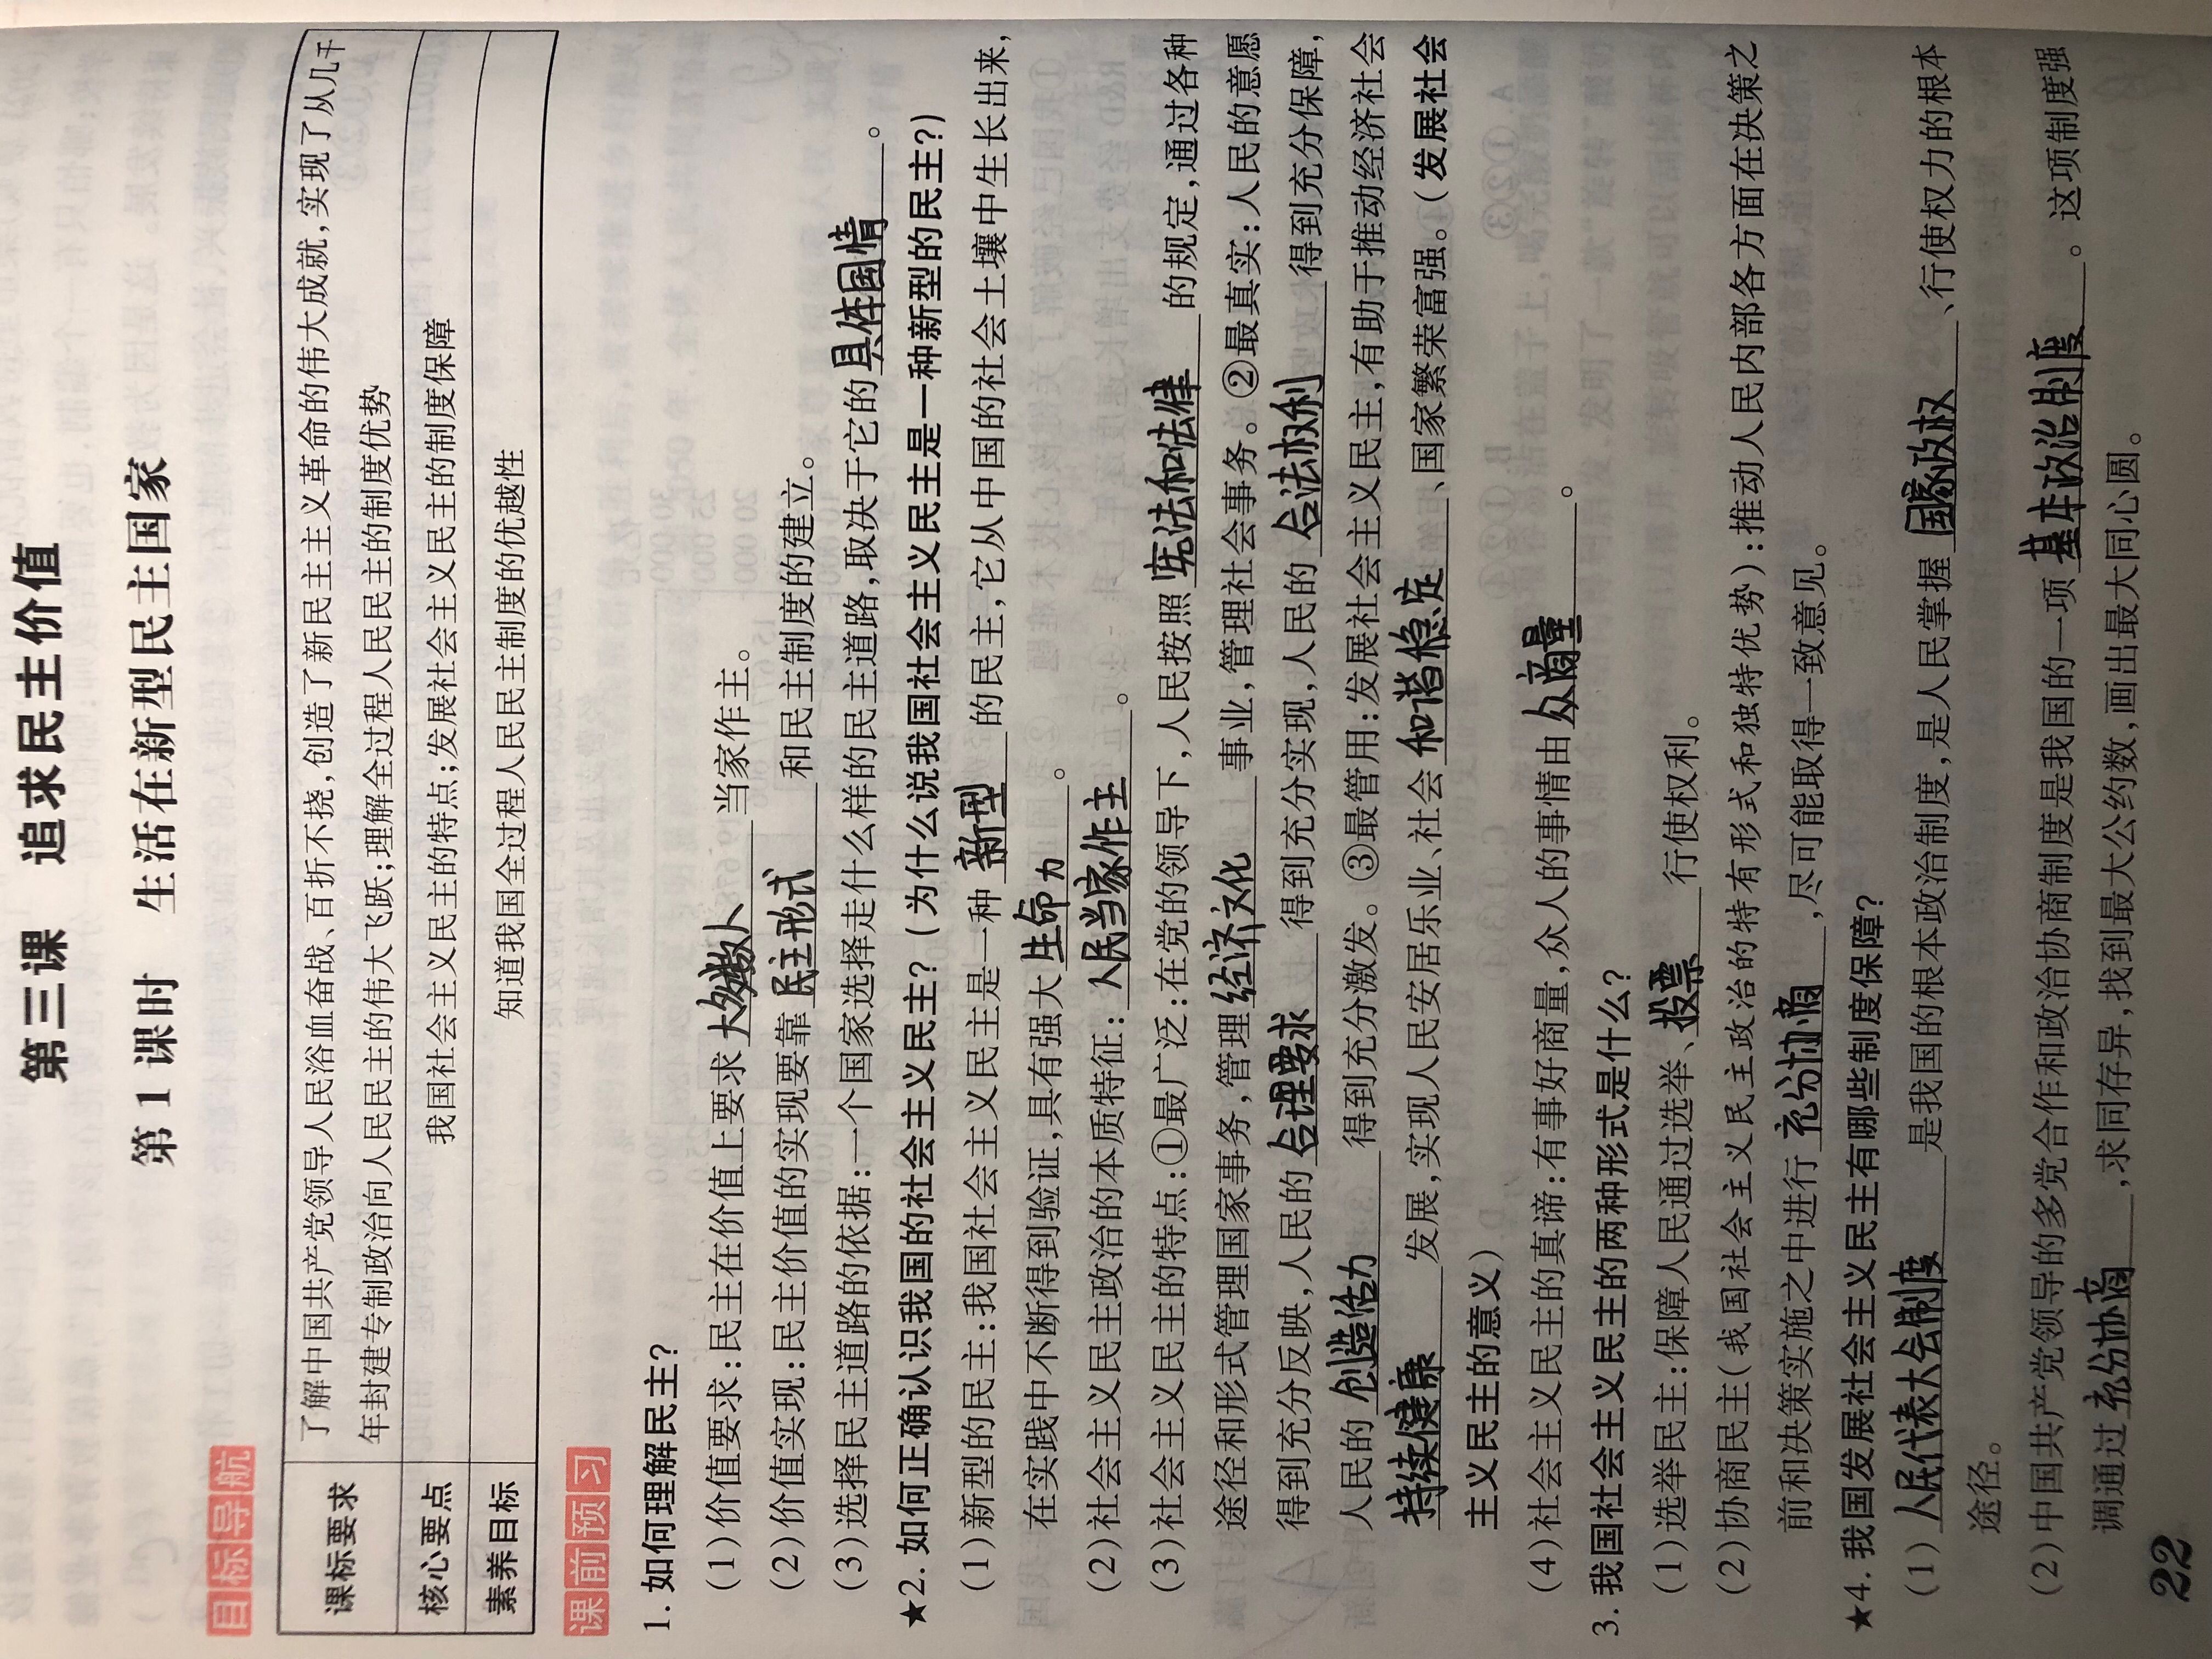 第三课 追求民主价值
第1课时 生活在新型民主国家
目标导航
课标要求 了解中国共产党领导人民浴血奋战、百折不挠,创造了新民主主义革命的伟大成就,实现了从几千
年封建专制政治向人民民主的伟大飞跃;理解全过程人民民主的制度优势
核心要点 我国社会主义民主的特点;发展社会主义民主的制度保障
素养目标 知道我国全过程人民民主制度的优越性
课前预习
1. 如何理解民主?
(1)价值要求:民主在价值上要求大多数人当家作主。
(2)价值实现:民主价值的实现要靠民主形式和民主制度的建立。
(3)选择民主道路的依据:一个国家选择走什么样的民主道路,取决于它的具体国情。
★2. 如何正确认识我国的社会主义民主?(为什么说我国社会主义民主是一种新型的民主?)
(1)新型的民主:我国社会主义民主是一种新型的民主,它从中国的社会土壤中生长出来,
在实践中不断得到验证,具有强大生命力。
(2)社会主义民主政治的本质特征:人民当家作主。
(3)社会主义民主的特点:①最广泛:在党的领导下,人民按照宪法和法律的规定,通过各种
途径和形式管理国家事务,管理经济文化事业,管理社会事务。②最真实:人民的意愿
得到充分反映,人民的合理要求得到充分实现,人民的合法权利得到充分保障,
人民的创造活力得到充分激发。③最管用:发展社会主义民主,有助于推动经济社会
持续健康发展,实现人民安居乐业、社会和谐稳定、国家繁荣富强。(发展社会
主义民主的意义)
(4)社会主义民主的真谛:有事好商量,众人的事情由众商量。
3. 我国社会主义民主的两种形式是什么?
(1)选举民主:保障人民通过选举、投票行使权利。
(2)协商民主(我国社会主义民主政治的特有形式和独特优势):推动人民内部各方面在决策之
前和决策实施之中进行充分协商,尽可能取得一致意见。
★4. 我国发展社会主义民主有哪些制度保障?
(1)人民代表大会制度是我国的根本政治制度,是人民掌握国家政权、行使权力的根本
途径。
(2)中国共产党领导的多党合作和政治协商制度是我国的一项基本政治制度。这项制度强
调通过充分协商,求同存异,找到最大公约数,画出最大同心圆。
22